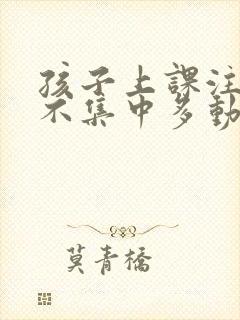 孩子上課注
不集中多動
莫青橋